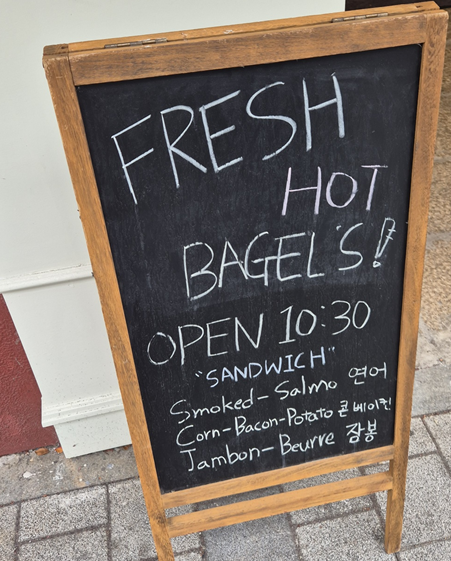 FRESH
HOT
BAGEL'S!
OPEN 10:30
"SANDWICH"
Smoked-Salmo 연어
Corn-Bacon-Potato 콘베이컨
Jambon-Beurre 잠봉